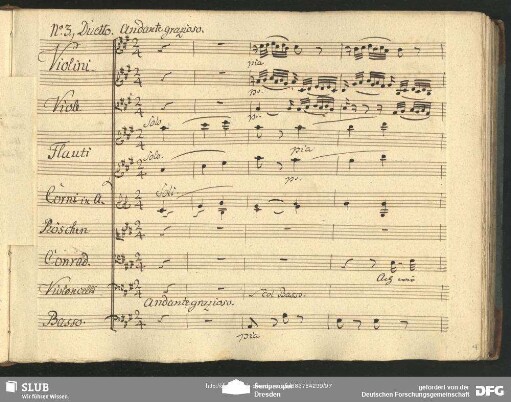 No. 3, Duetto. Andante grazioso.
Violini
pia
Viole
p.
Solo
Flauti
Solo.
pia
p.
Corni in A.
Soli
Röschen
Conrad.
Ach
Violoncelli
Col Basso.
Andante grazioso.
Basso.
pia
SLUB
Wir führen Wissen.
Dresden
gefördert von der
Deutschen Forschungsgemeinschaft
DFG